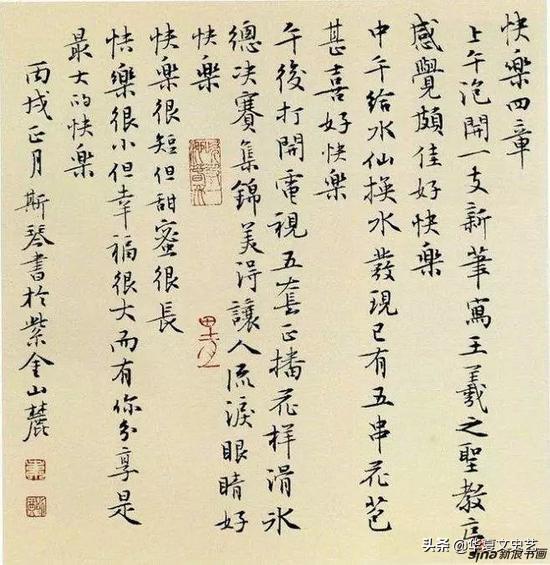 快樂四章
上午泡開一支新筆寫王羲之聖教序
感覺頗佳好快樂
中午給水仙換水發現已有五串花苞
甚喜好快樂
午後打開電視五套正播花样滑冰
總决賽集錦美得讓人流淚眼睛好
快樂
快樂很短但甜蜜很長
快樂很小但幸福很大而有你分享是
最大的快樂
丙戌正月斯琴書於紫金山麓
头条 @华夏文史艺
sina新浪书画